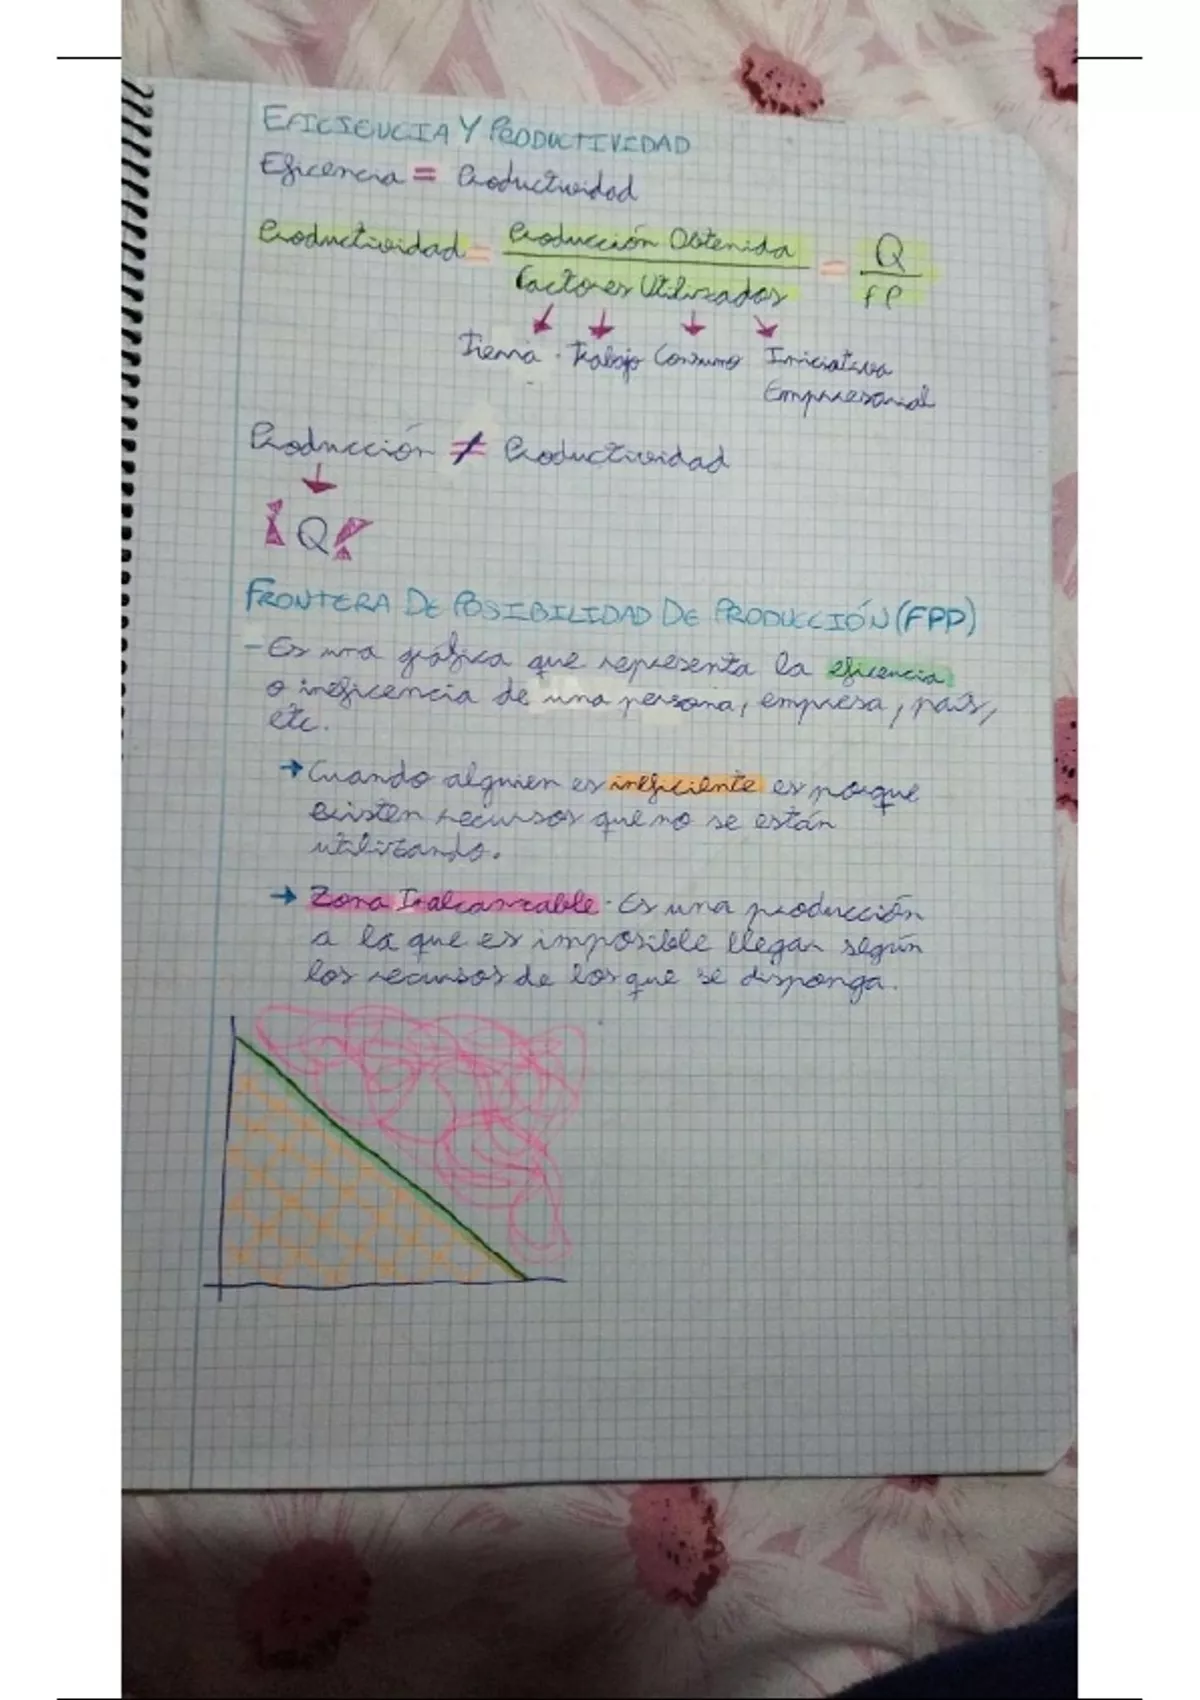 EFICIENCIA Y PRODUCTIVIDAD
Eficencia = Productividad
Productividad = Producción Obtenida / Factores Utilizados = Q / FP
Tierra · Trabajo Consumo Iniciativa Empresarial
Producción ≠ Productividad
¡Q!
FRONTERA DE POSIBILIDAD DE PRODUCCIÓN (FPP)
- Es una gráfica que representa la eficencia
o ineficencia de una persona, empresa, país,
etc.
→ Cuando alguien es ineficiente es porque
existen recursos que no se están
utilizando.
→ Zona Inalcanzable · Es una producción
a la que es imposible llegar según
los recursos de los que se disponga.